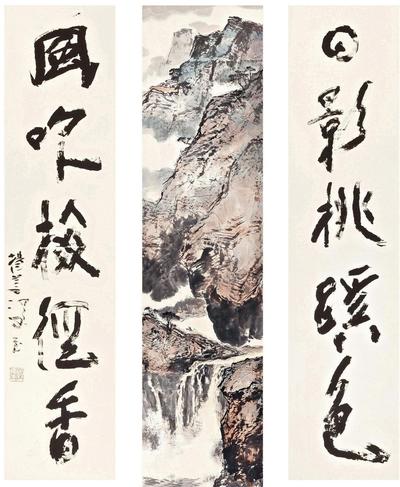 日影桃蹊色
風吹梅徑香